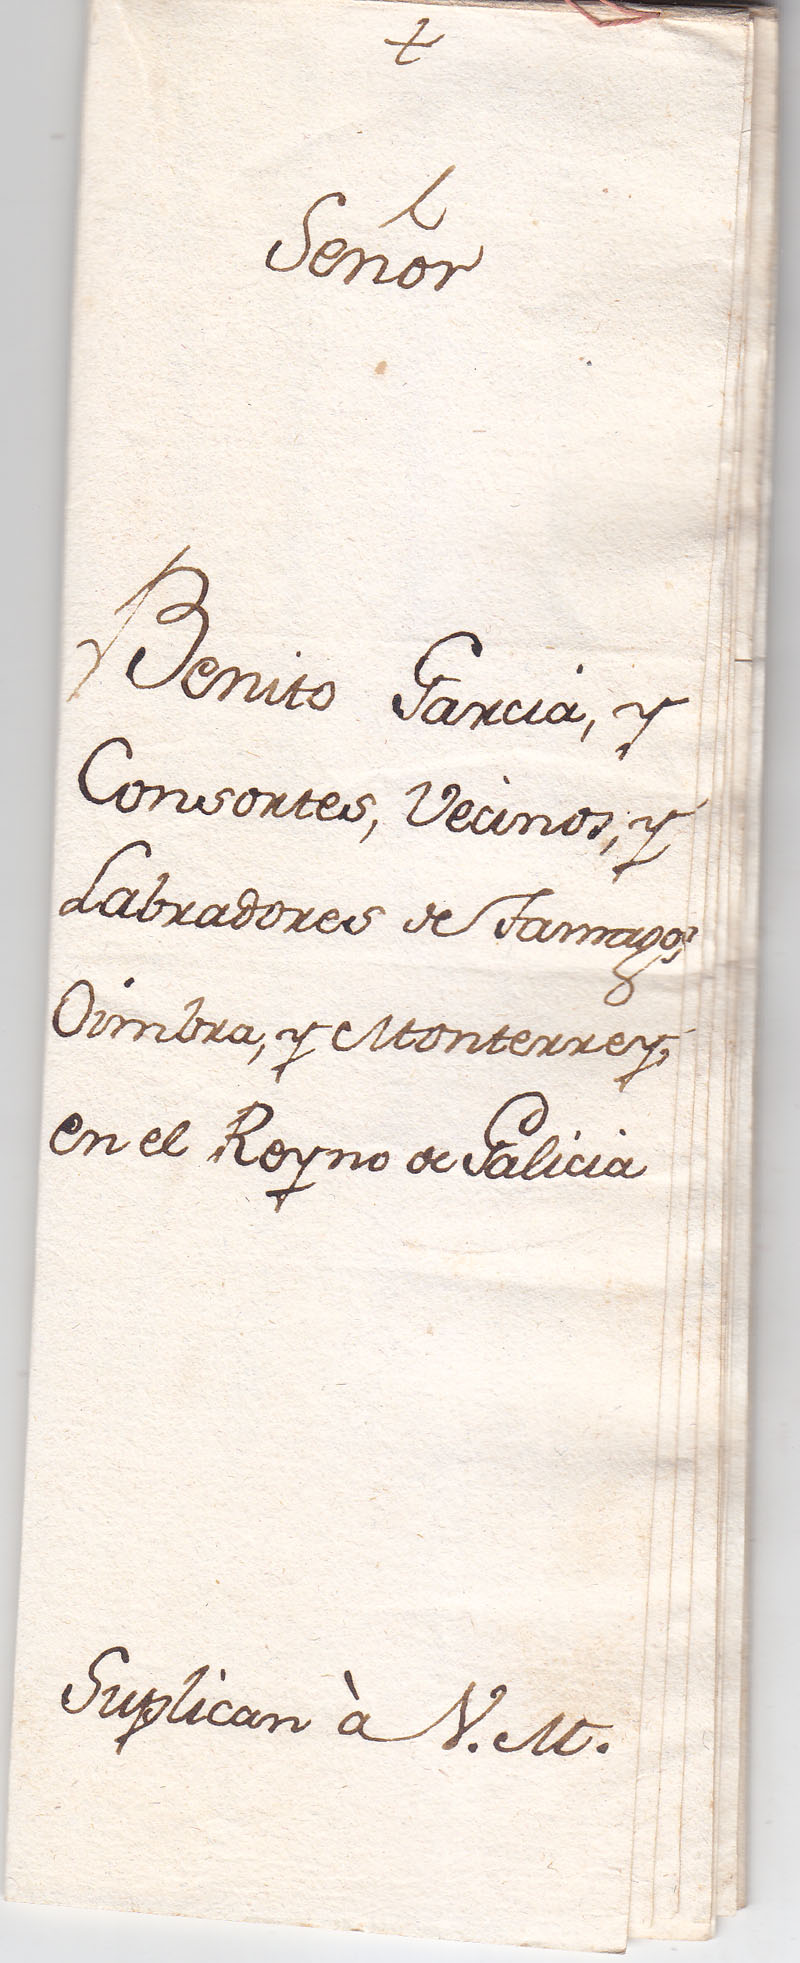 +
Señor
Benito Garcia, y
Consortes, Vecinos, y
Labradores de Tamagos,
Oimbra, y Monterrey,
en el Reyno de Galicia
Suplican à V. M.